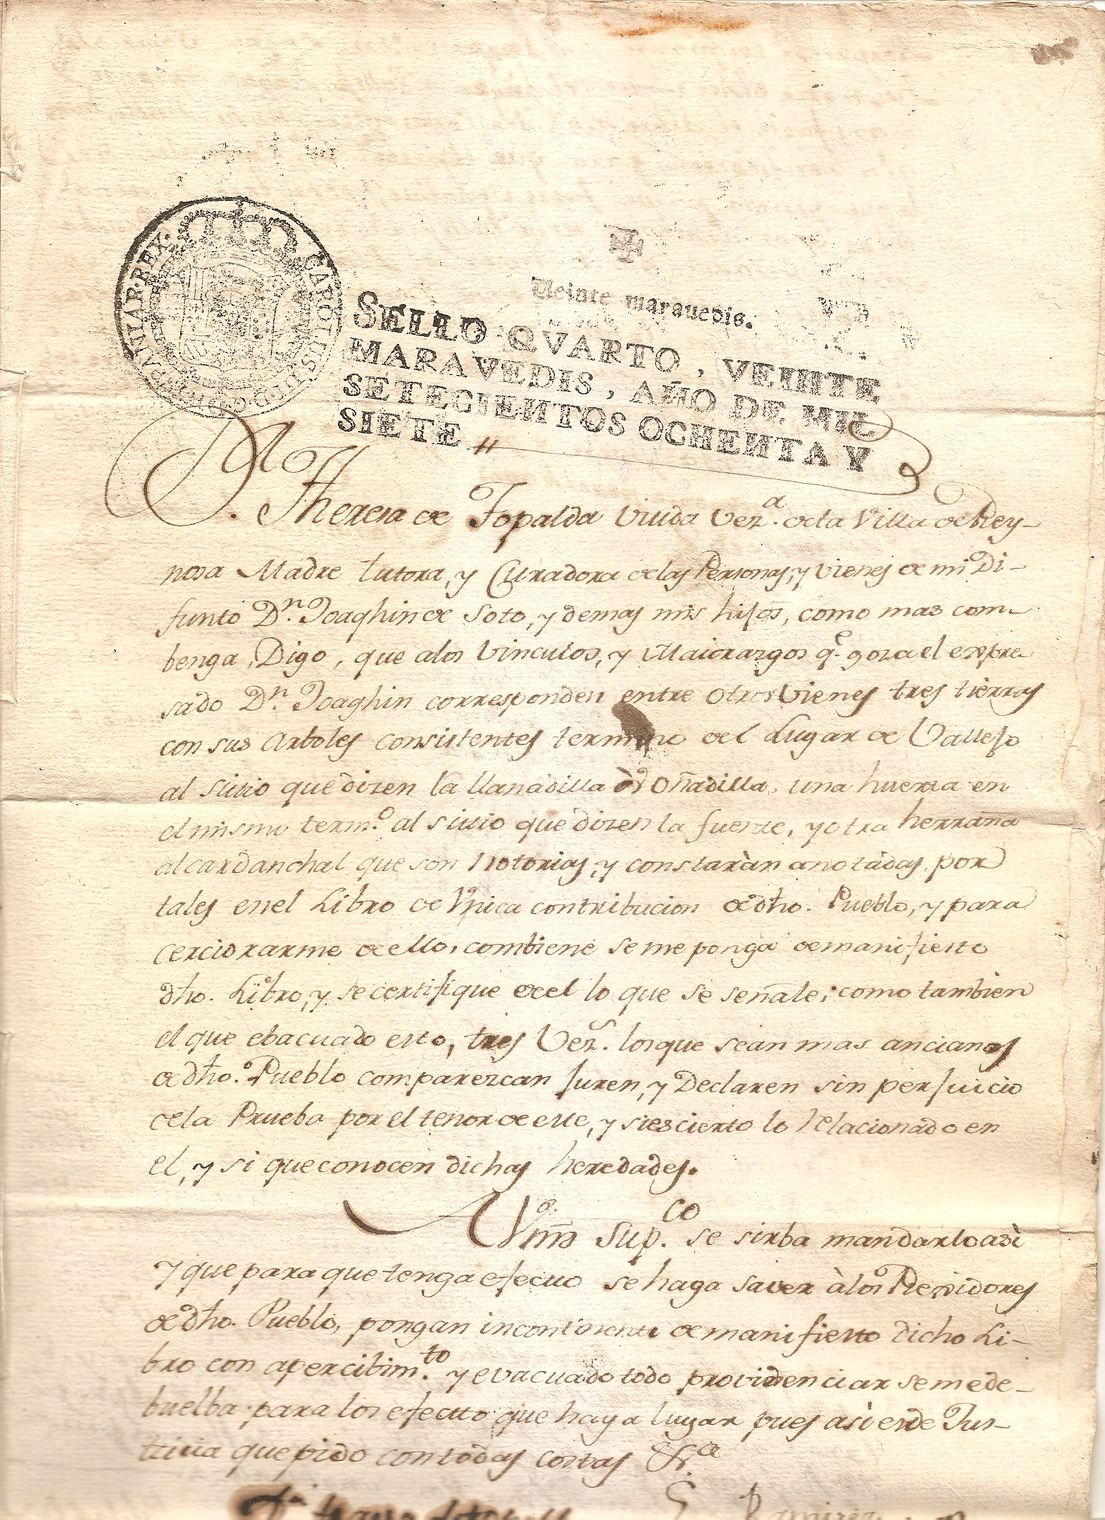 CAROLUS III D G HISPANIAR REX
Veinte maravedis.
SELLO QVARTO, VEINTE
MARAVEDIS, AÑO DE MIL
SETECIENTOS OCHENTA Y
SIETE
D.ª Theresa de Topalda Viuda Vez.ª de la Villa de Rey-
nosa Madre tutora, y Curadora de las Personas, y vienes de mi Di-
funto D.n Joaghin de Soto, y demas mis hijos, como mas com-
benga, Digo, que alos Vinculos, y Maiorazgos q.e goza el expre
sado D.n Joaghin corresponden entre otros Vienes tres tierras
con sus Arboles consistentes termino del Lugar de Vallejo
al sitio que dizen la llanadilla ò Oñadilla, una huerta en
el mismo term.o al sitio que dizen la fuente, y otra herrañ
al cardanchal que son Notorias, y constaràn anotàdas, por
tales enel Libro de Vnica contribucion de dho. Pueblo, y para
cerciorarme de ello, combiene se me ponga de manifiesto
dho. Libro, y se certifique de el lo que se señale; como tambien
el que ebacuado esto, tres Vez.s los que sean mas ancianos
de dho. Pueblo comparezcan juren, y Declaren sin perjuicio
de la Prueba por el tenor de este, y si es cierto lo relacionado en
el, y si que conocen dichas heredades.
A Vm̃ Sup.co se sirba mandarlo asi
y que para que tenga efecto se haga saver à los Regidores
de dho. Pueblo, pongan incontinenti de manifiesto dicho Li-
bro con apercibim.to y evacuado todo providenciar se me de-
buelba para los efectto que haya lugar pues asi es de Jus-
ticia que pido con todas costas &.a
Ramirez